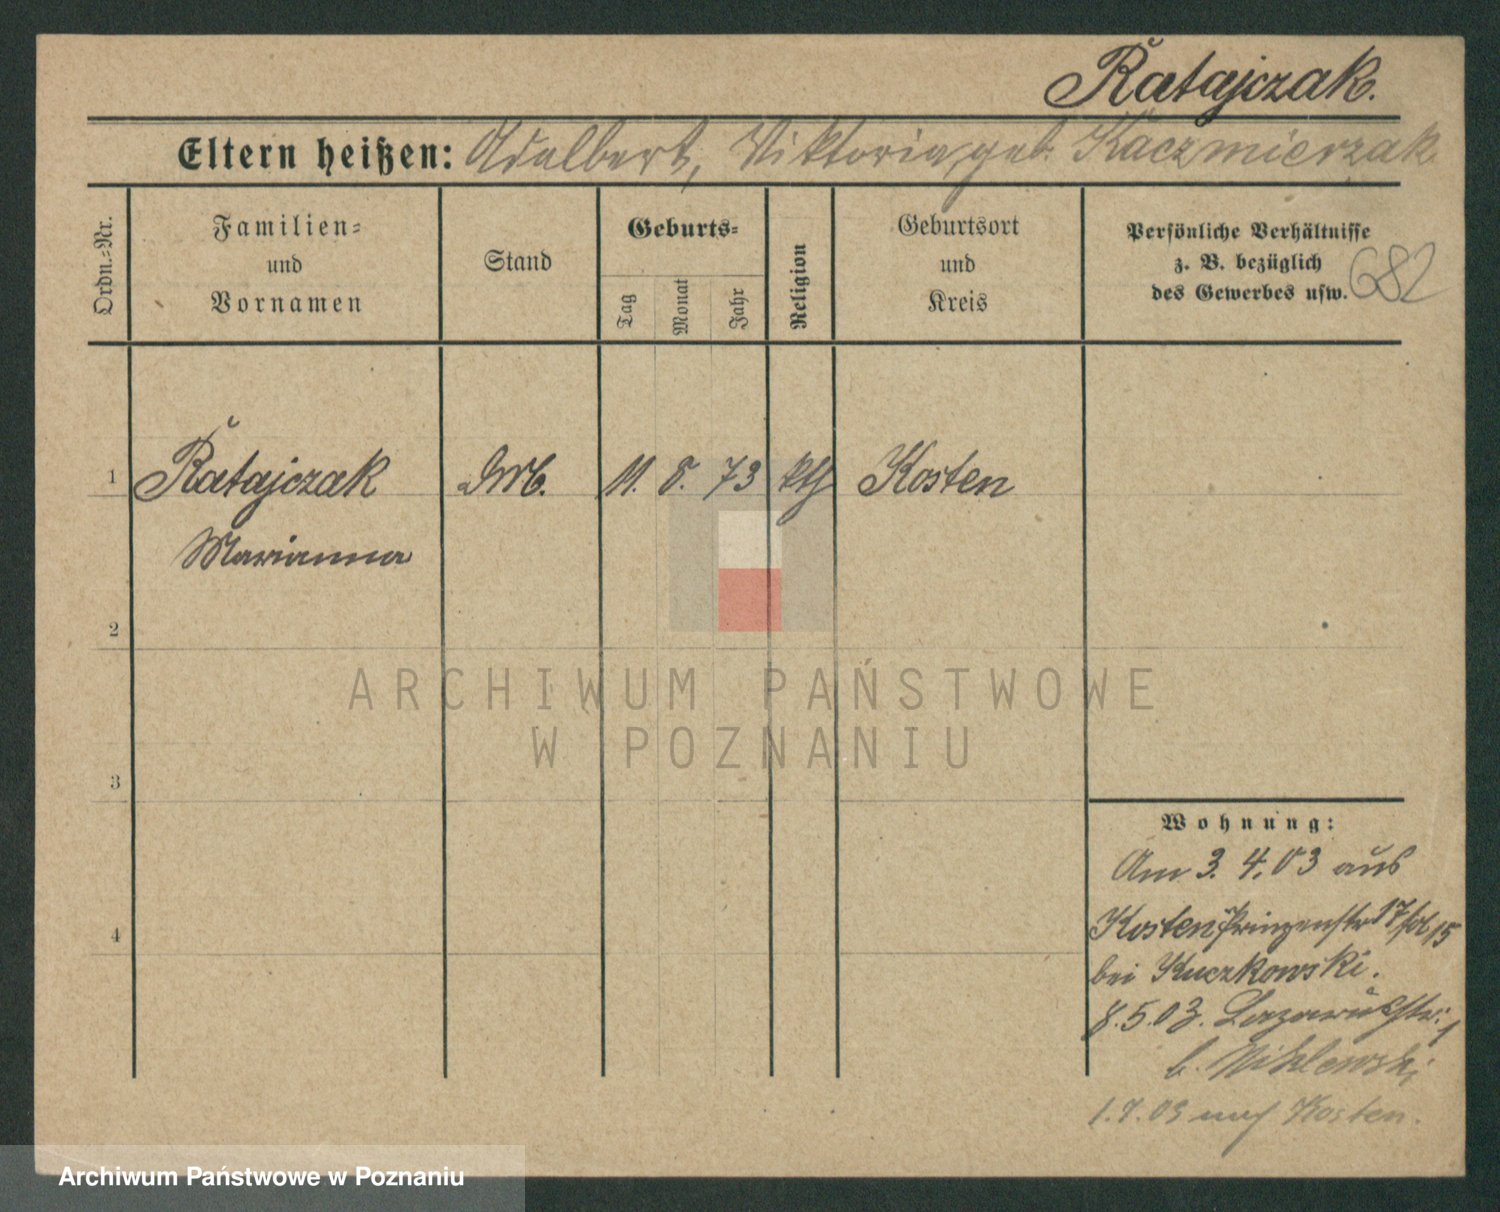 Ratajczak.
Eltern heißen: Adalbert, Viktoria, geb. Kaczmierzak
Ordn.-Nr.
Familien-
und
Vornamen
Stand
Geburts-
Tag
Monat
Jahr
Religion
Geburtsort
und
Kreis
Persönliche Verhältnisse
z. B. bezüglich
des Gewerbes usw.
682
1 Ratajczak Arb. 11. 8. 73 kth Kosten
Marianna
2
3
4
Wohnung:
Am 3. 4. 03 aus
Kosten Prinzenstr 17
bei Kuczkowski.
8. 5. 03. Lazarusstr. 1
b.
1. 7. 03 nach Kosten.
ARCHIWUM PAŃSTWOWE
W POZNANIU
Archiwum Państwowe w Poznaniu